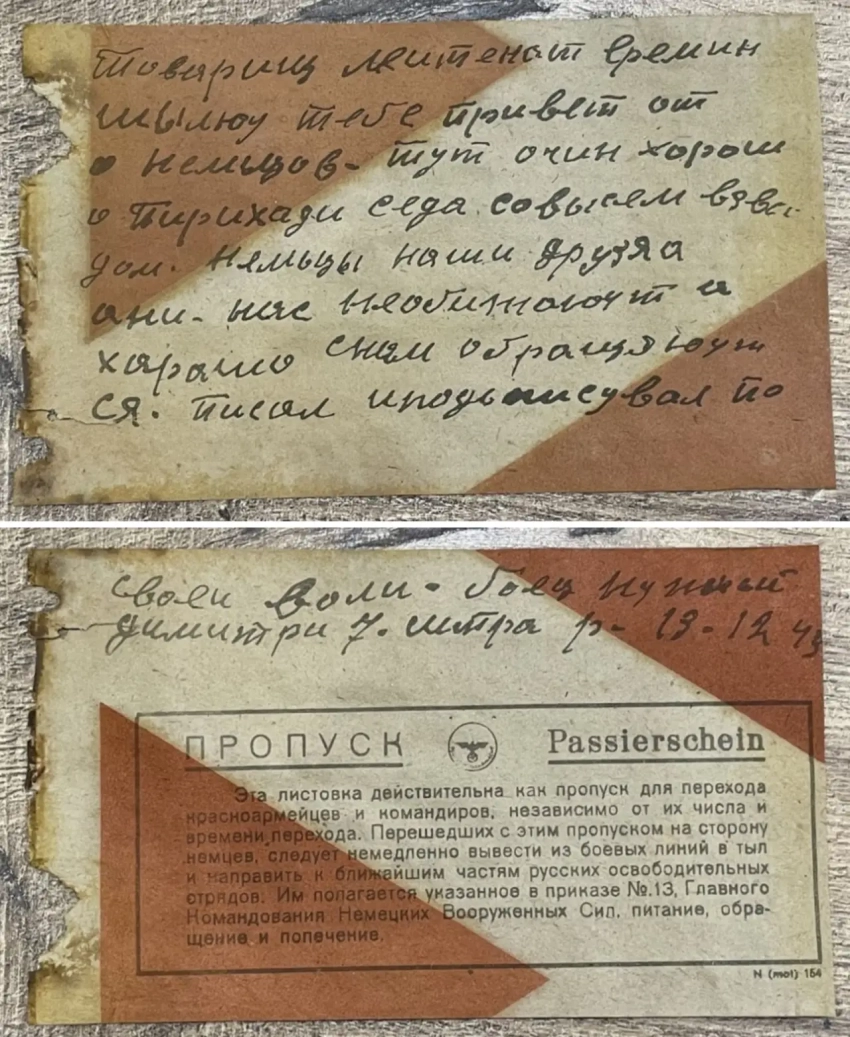 Товарищ леитенат Еремин
шылюу тебе привет от
о немьцов- тут очин хорош
о пирихади сєда совысем взвєи
дом. нямьцы наши друзяа
ани- нас необижаюут и
харашо снам обращяюут
ся. писал иподьписувал по
своеи воли- боец нужный
димитри 7. штра р- 19-12 43
ПРОПУСК Passierschein
Эта листовка действительна как пропуск для перехода
красноармейцев и командиров, независимо от их числа и
времени перехода. Перешедших с этим пропуском на сторону
немцев, следует немедленно вывести из боевых линий в тыл
и направить к ближайшим частям русских освободительных
отрядов. Им полагается указанное в приказе №.13, Главного
Командования Немецких Вооруженных Сил, питание, обра-
щение и попечение.
N (mot) 154